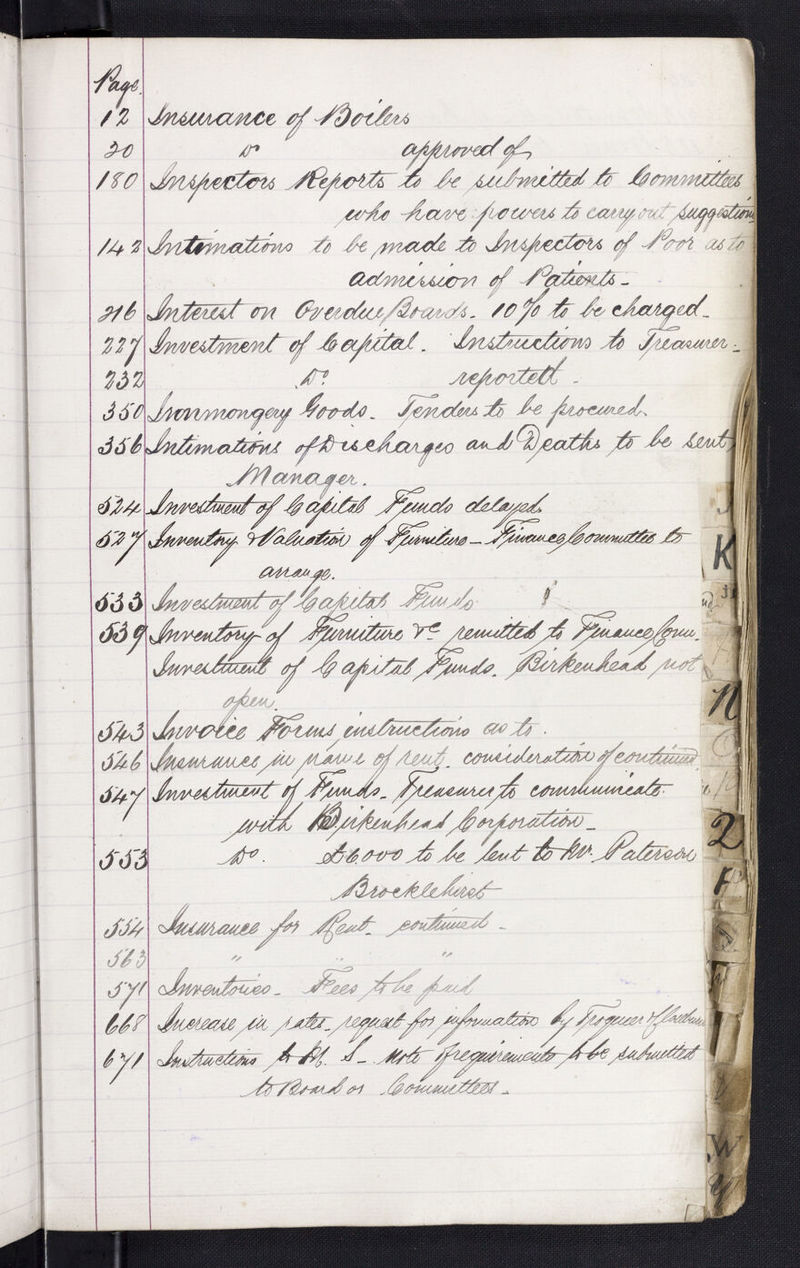 Page.
12 Insurance of Boilers
20 Do approved of
180 Inspectors Reports to be submitted to Committees
who have powers to carry out suggestions
142 Intimations to be made to Inspectors of Poor as to
admission of Patients -
216 Interest on Overdue Boards. 10% to be charged -
227 Investment of Capital. Instructions to Treasurer -
232 Do reported -
350 Ironmongery Goods. Tenders to be procured.
356 Intimations of Discharges and Deaths to be sent
Manager.
524 Investment of Capital Funds delayed
527 Inventory & Valuation of Furniture - Finance Committee to
arrange.
533 Investment of Capital Funds
539 Inventory of Furniture &c remitted to Finance Com.
Investment of Capital Funds. Birkenhead not
open.
543 Invoice Forms, instructions as to.
546 Insurances in name of rent. consideration of continued
547 Investment of Funds. Treasurer to communicate
with Birkenhead Corporation -
553 Do. £6000 to be lent to Mr. Paterson
Brocklehirst
554 Insurance for Rent. continued -
563 " " "
571 Inventories - Fees to be paid
668 Increase in rates. request for information by Troqueer &
671 Instructions to M. S - note of requirements to be submitted
to Board or Committees -
K
N
O
P
2
R
S
T
V
W
Y